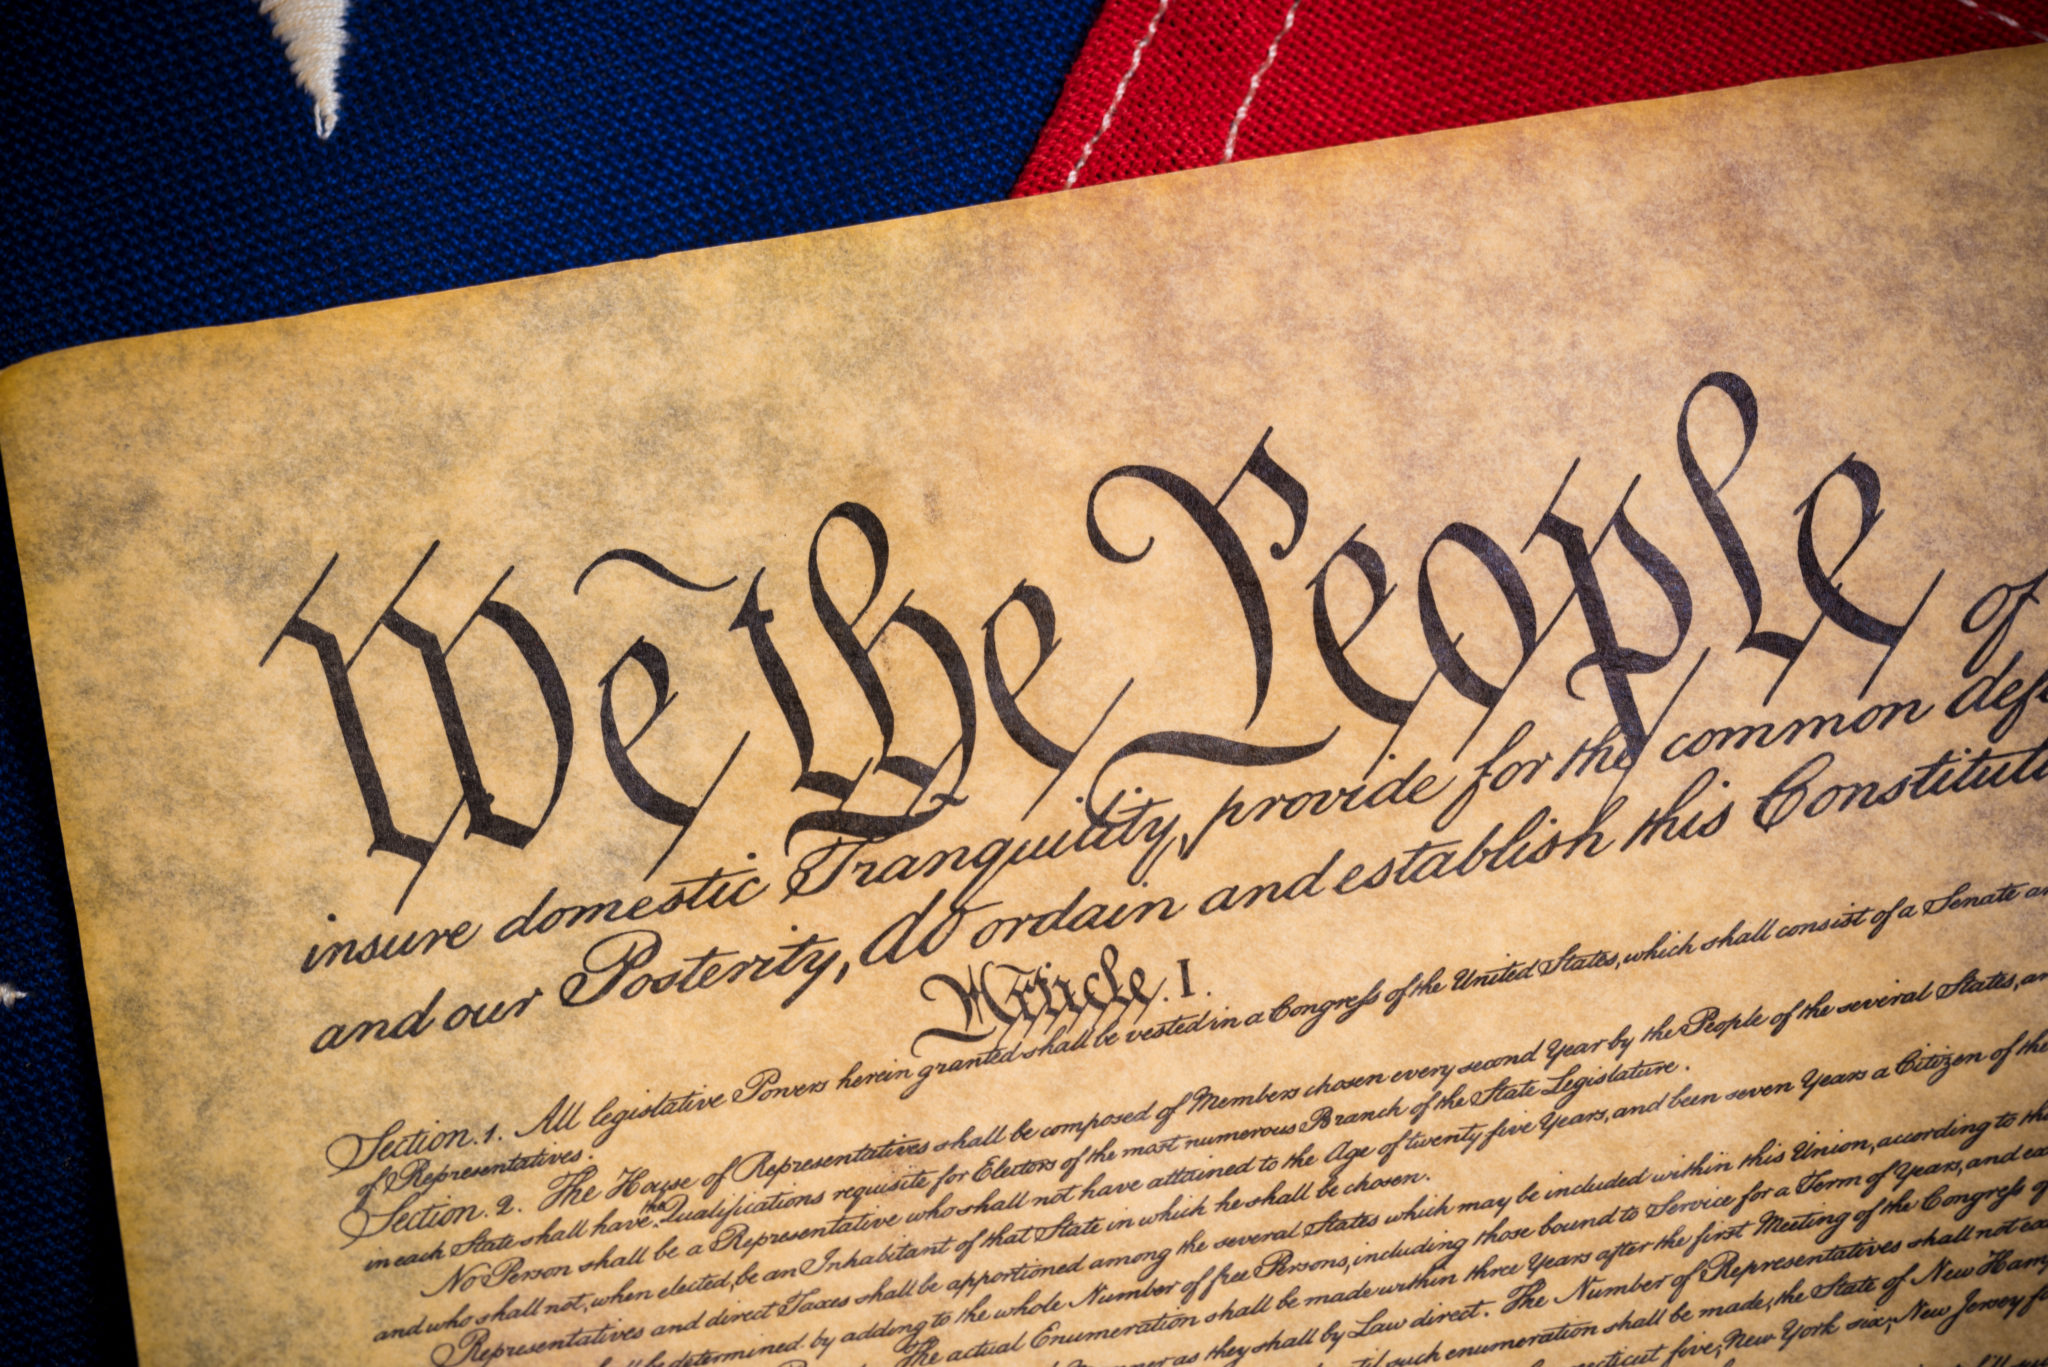 We the People of
insure domestic Tranquility, provide for the common def
and our Posterity, do ordain and establish this Constituti
Article. I.
Section. 1. All legislative Powers herein granted shall be vested in a Congreſs of the United States, which shall consist of a Senate an
of Representatives.
Section. 2. The House of Representatives shall be composed of Members chosen every second Year by the People of the several States, an
in each State shall have the Qualifications requisite for Electors of the most numerous Branch of the State Legislature.
No Person shall be a Representative who shall not have attained to the Age of twenty five Years, and been seven Years a Citizen of the
and who shall not, when elected, be an Inhabitant of that State in which he shall be chosen.
Representatives and direct Taxes shall be apportioned among the several States which may be included within this Union, according to th
be determined by adding to the whole Number of free Persons, including those bound to Service for a Term of Years, and ex
The actual Enumeration shall be made within three Years after the first Meeting of the Congreſs of
as they shall by Law direct. The Number of Representatives shall not ex
such enumeration shall be made, the State of New Hamp
five, New York six, New Jersey fo